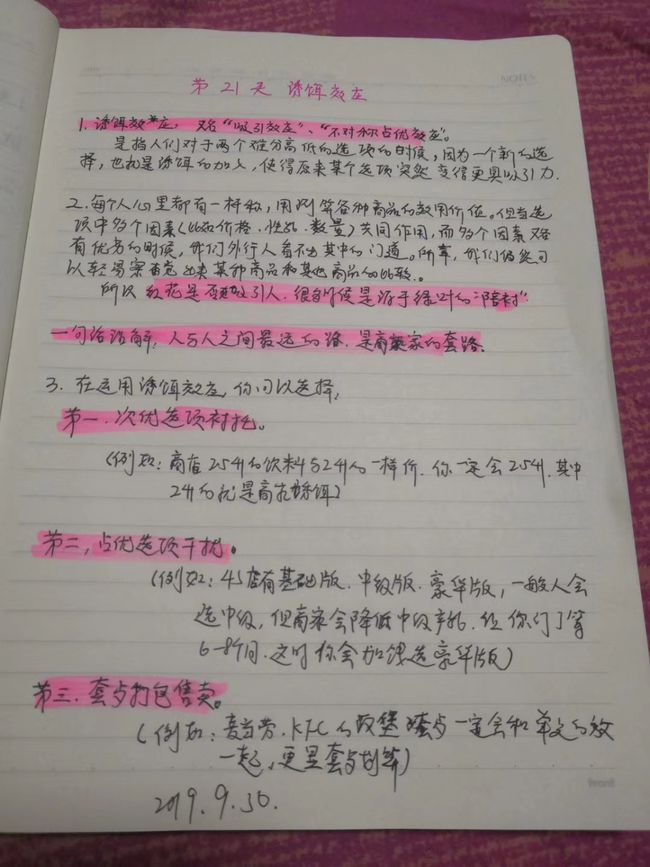 NOTES
第21天 诱饵效应
1. 诱饵效应, 又名“吸引效应”、“不对称占优效应”。
是指人们对于两个难分高低的选项的时候,因为一个新的选
择,也就是诱饵的加入,使得原来某个选项突然变得更具吸引力.
2. 每个人心里都有一杆称,用来算各种商品的效用价值。但当选
项中多个因素(比如价格、性能、数量)共同作用,而多个因素又各
有优劣的时候,我们外行人看不出其中的门道。所幸,我们仍然可
以轻易察觉出来某部商品和其他商品的比较。
所以红花是否吸引人.很多时候是源于绿叶的“陪衬”
一句话活解:人与人之间最远的路.是商家的套路.
3. 在运用诱饵效应,你可以选择:
第一.次优选项衬托。
(例如:商店2.5升的饮料与2升的一样价.你一定会2.5升.其中
2升的就是商家诱饵)
第二,占优选项干扰。
(例如:4S店有基础版.中级版.豪华版,一般人会
选中级,但商家会降低中级产能.让你们订等
6-8个月.这时你会加钱选豪华版)
第三.套餐打包售卖。
(例如:麦当劳.KFC的汉堡套餐一定会和单点的放
一起,更显套餐划算)
2019.9.30.